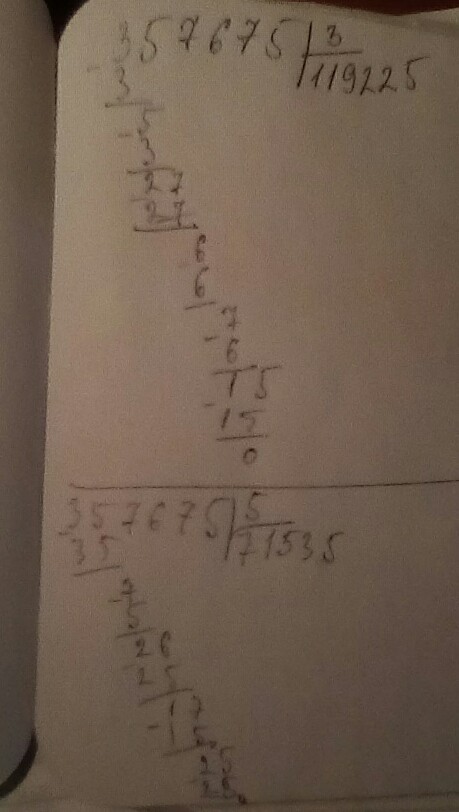 357675 | 3
- 3 119225
5
- 3
27
27
6
6
7
- 6
15
- 15
0
357675 | 5
35 71535
7
5
26
25
17
- 15
25
25
0